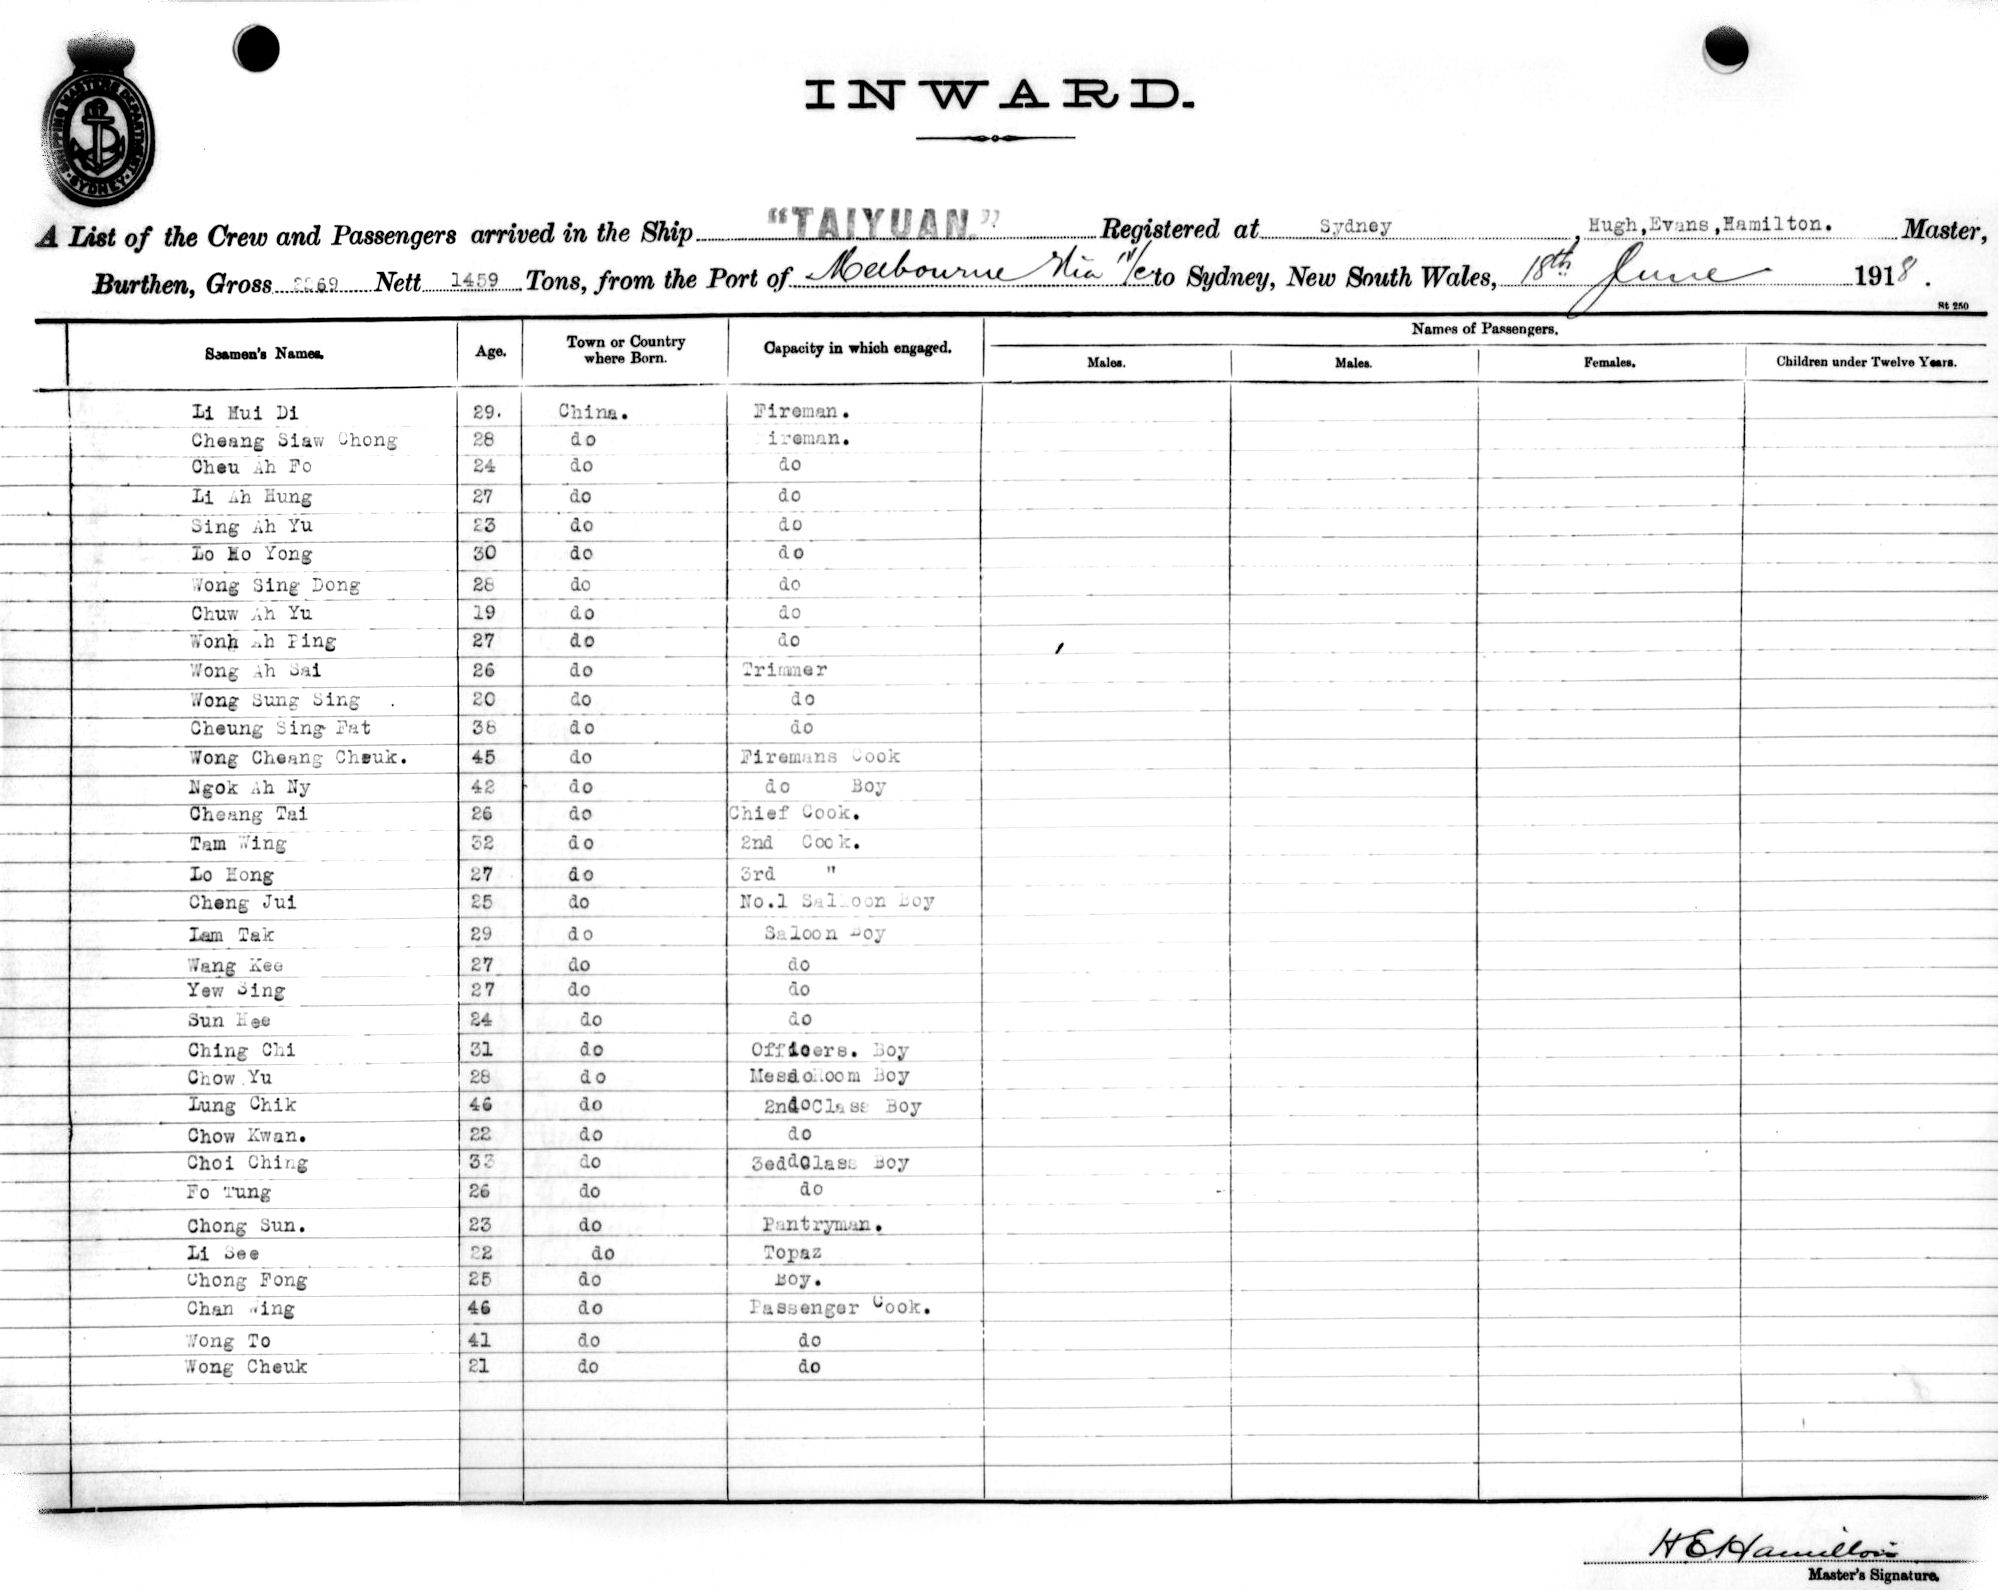 SHIPPING MASTERS DEPARTMENT SYDNEY
INWARD.
A List of the Crew and Passengers arrived in the Ship "TAIYUAN." Registered at Sydney, Hugh,Evans,Hamilton. Master,
Burthen, Gross 2269 Nett 1459 Tons, from the Port of Melbourne Via to Sydney, New South Wales, 18th June 1918.
St 250
Seamen's Names. Age. Town or Country where Born. Capacity in which engaged. Names of Passengers.
Males. Males. Females. Children under Twelve Years.
Li Hui Di 29. China. Fireman.
Cheang Siaw Chong 28 do Fireman.
Cheu Ah Fo 24 do do
Li Ah Hung 27 do do
Sing Ah Yu 23 do do
Lo Ho Yong 30 do do
Wong Sing Dong 28 do do
Chuw Ah Yu 19 do do
Wonh Ah Ping 27 do do
Wong Ah Sai 26 do Trimmer
Wong Sung Sing 20 do do
Cheung Sing Fat 38 do do
Wong Cheang Cheuk. 45 do Firemans Cook
Ngok Ah Ny 42 do do Boy
Cheang Tai 26 do Chief Cook.
Tam Wing 32 do 2nd Cook.
Lo Hong 27 do 3rd "
Cheng Jui 25 do No.1 Salloon Boy
Lam Tak 29 do Saloon Boy
Wang Kee 27 do do
Yew Sing 27 do do
Sun Hee 24 do do
Ching Chi 31 do Officers. Boy
Chow Yu 28 do Mess Room Boy
Lung Chik 46 do 2nd Class Boy
Chow Kwan. 22 do do
Choi Ching 33 do 3ed Class Boy
Fo Tung 26 do do
Chong Sun. 23 do Pantryman.
Li See 22 do Topaz
Chong Fong 25 do Boy.
Chan Wing 46 do Passenger Cook.
Wong To 41 do do
Wong Cheuk 21 do do
H E Hamilton
Master's Signature.